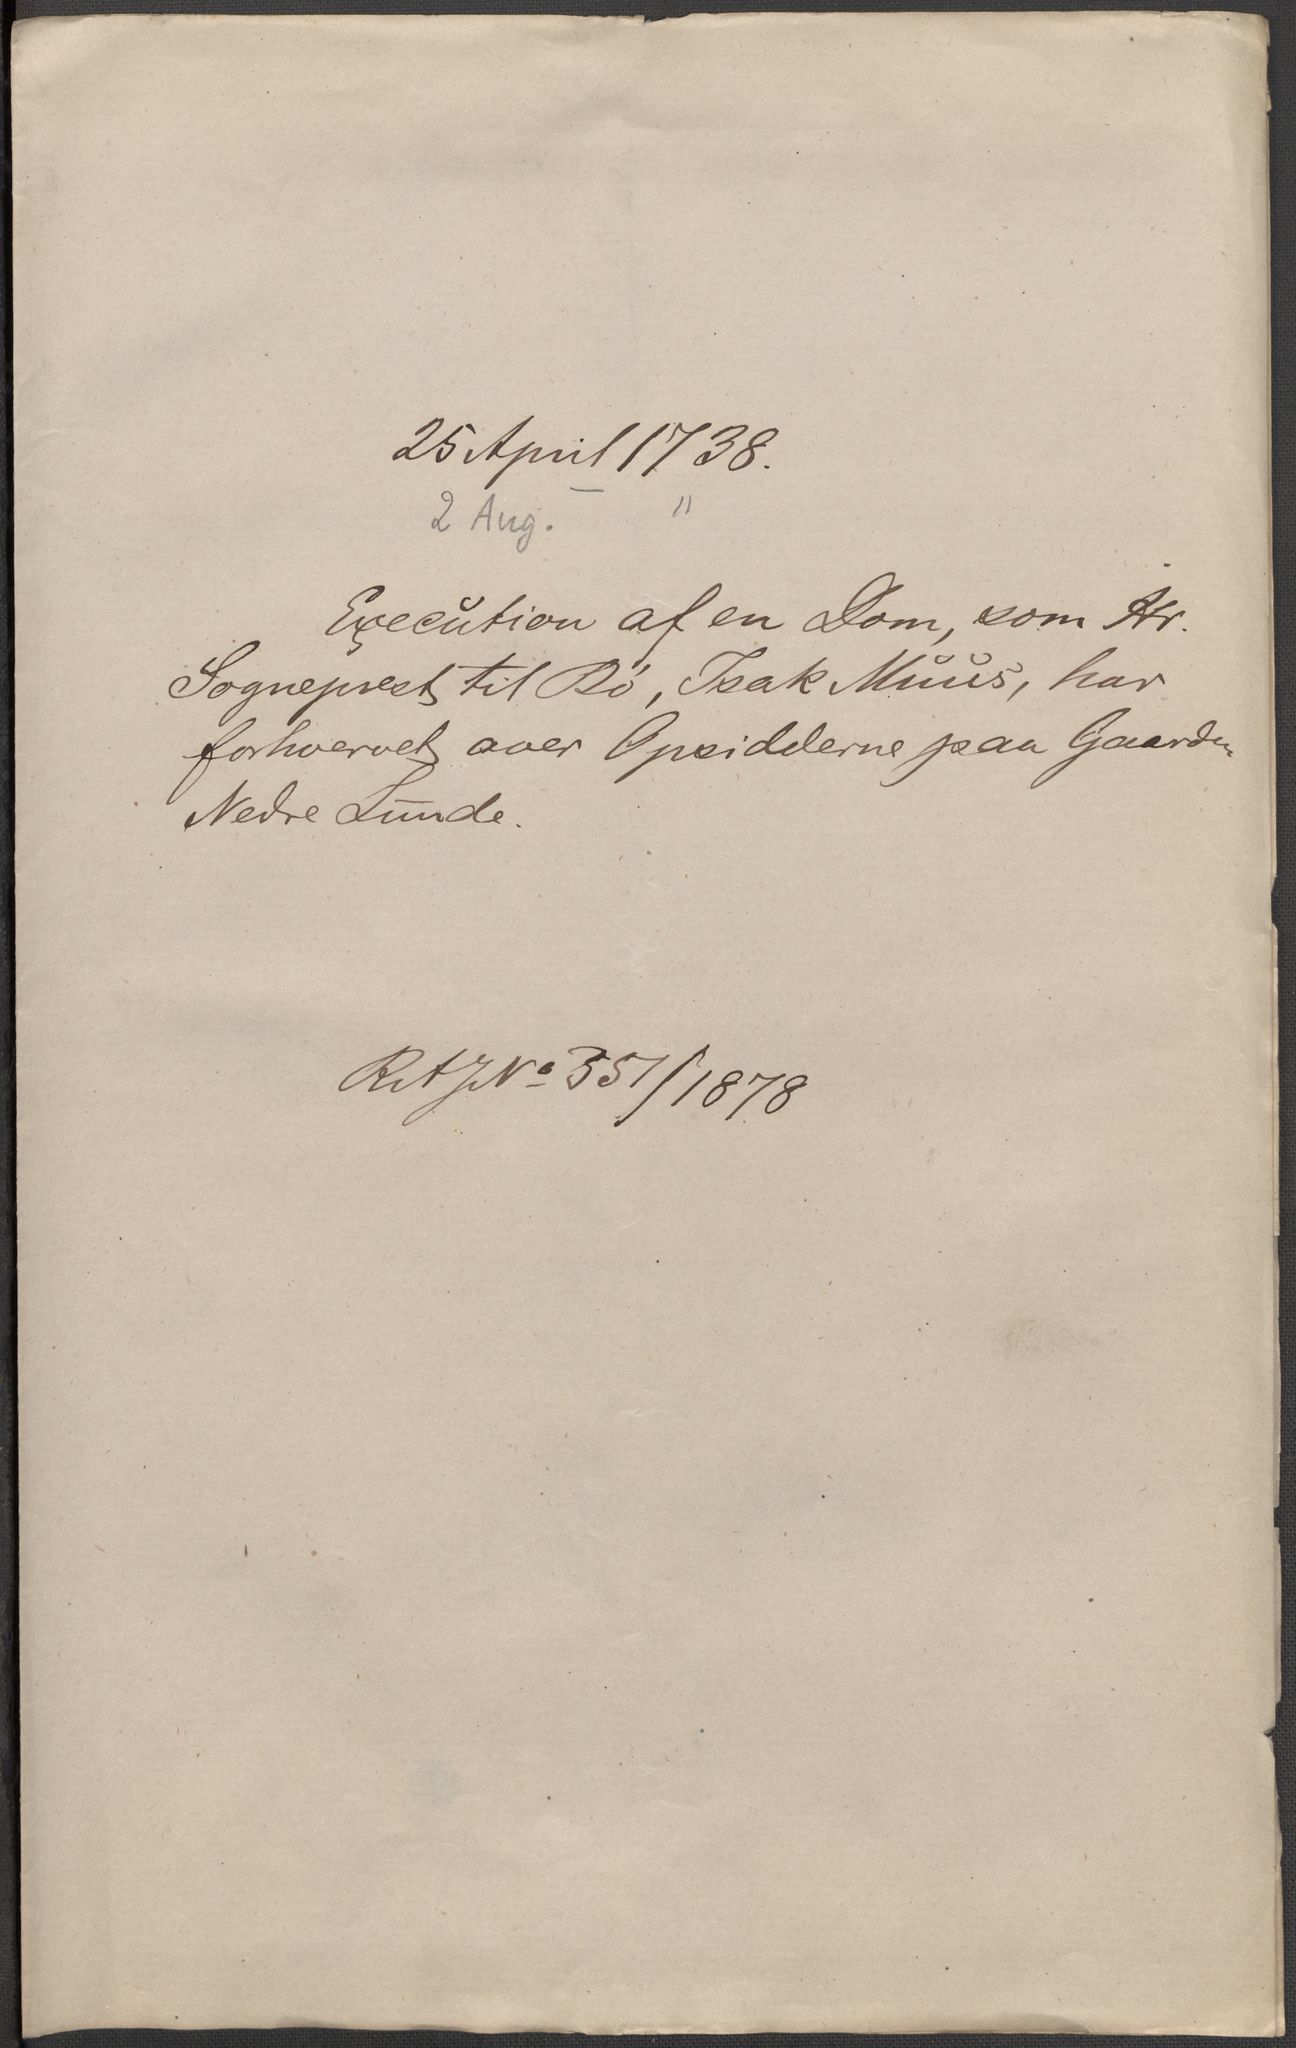 25 April 1738.
2 Aug. — "
Execution af en Dom, som Hr.
Sogneprest til Bö, Isak Muus, har
forhvervet over Opsidderne paa Gaarden
Nedre Lunde.
RAJNo 351/1878